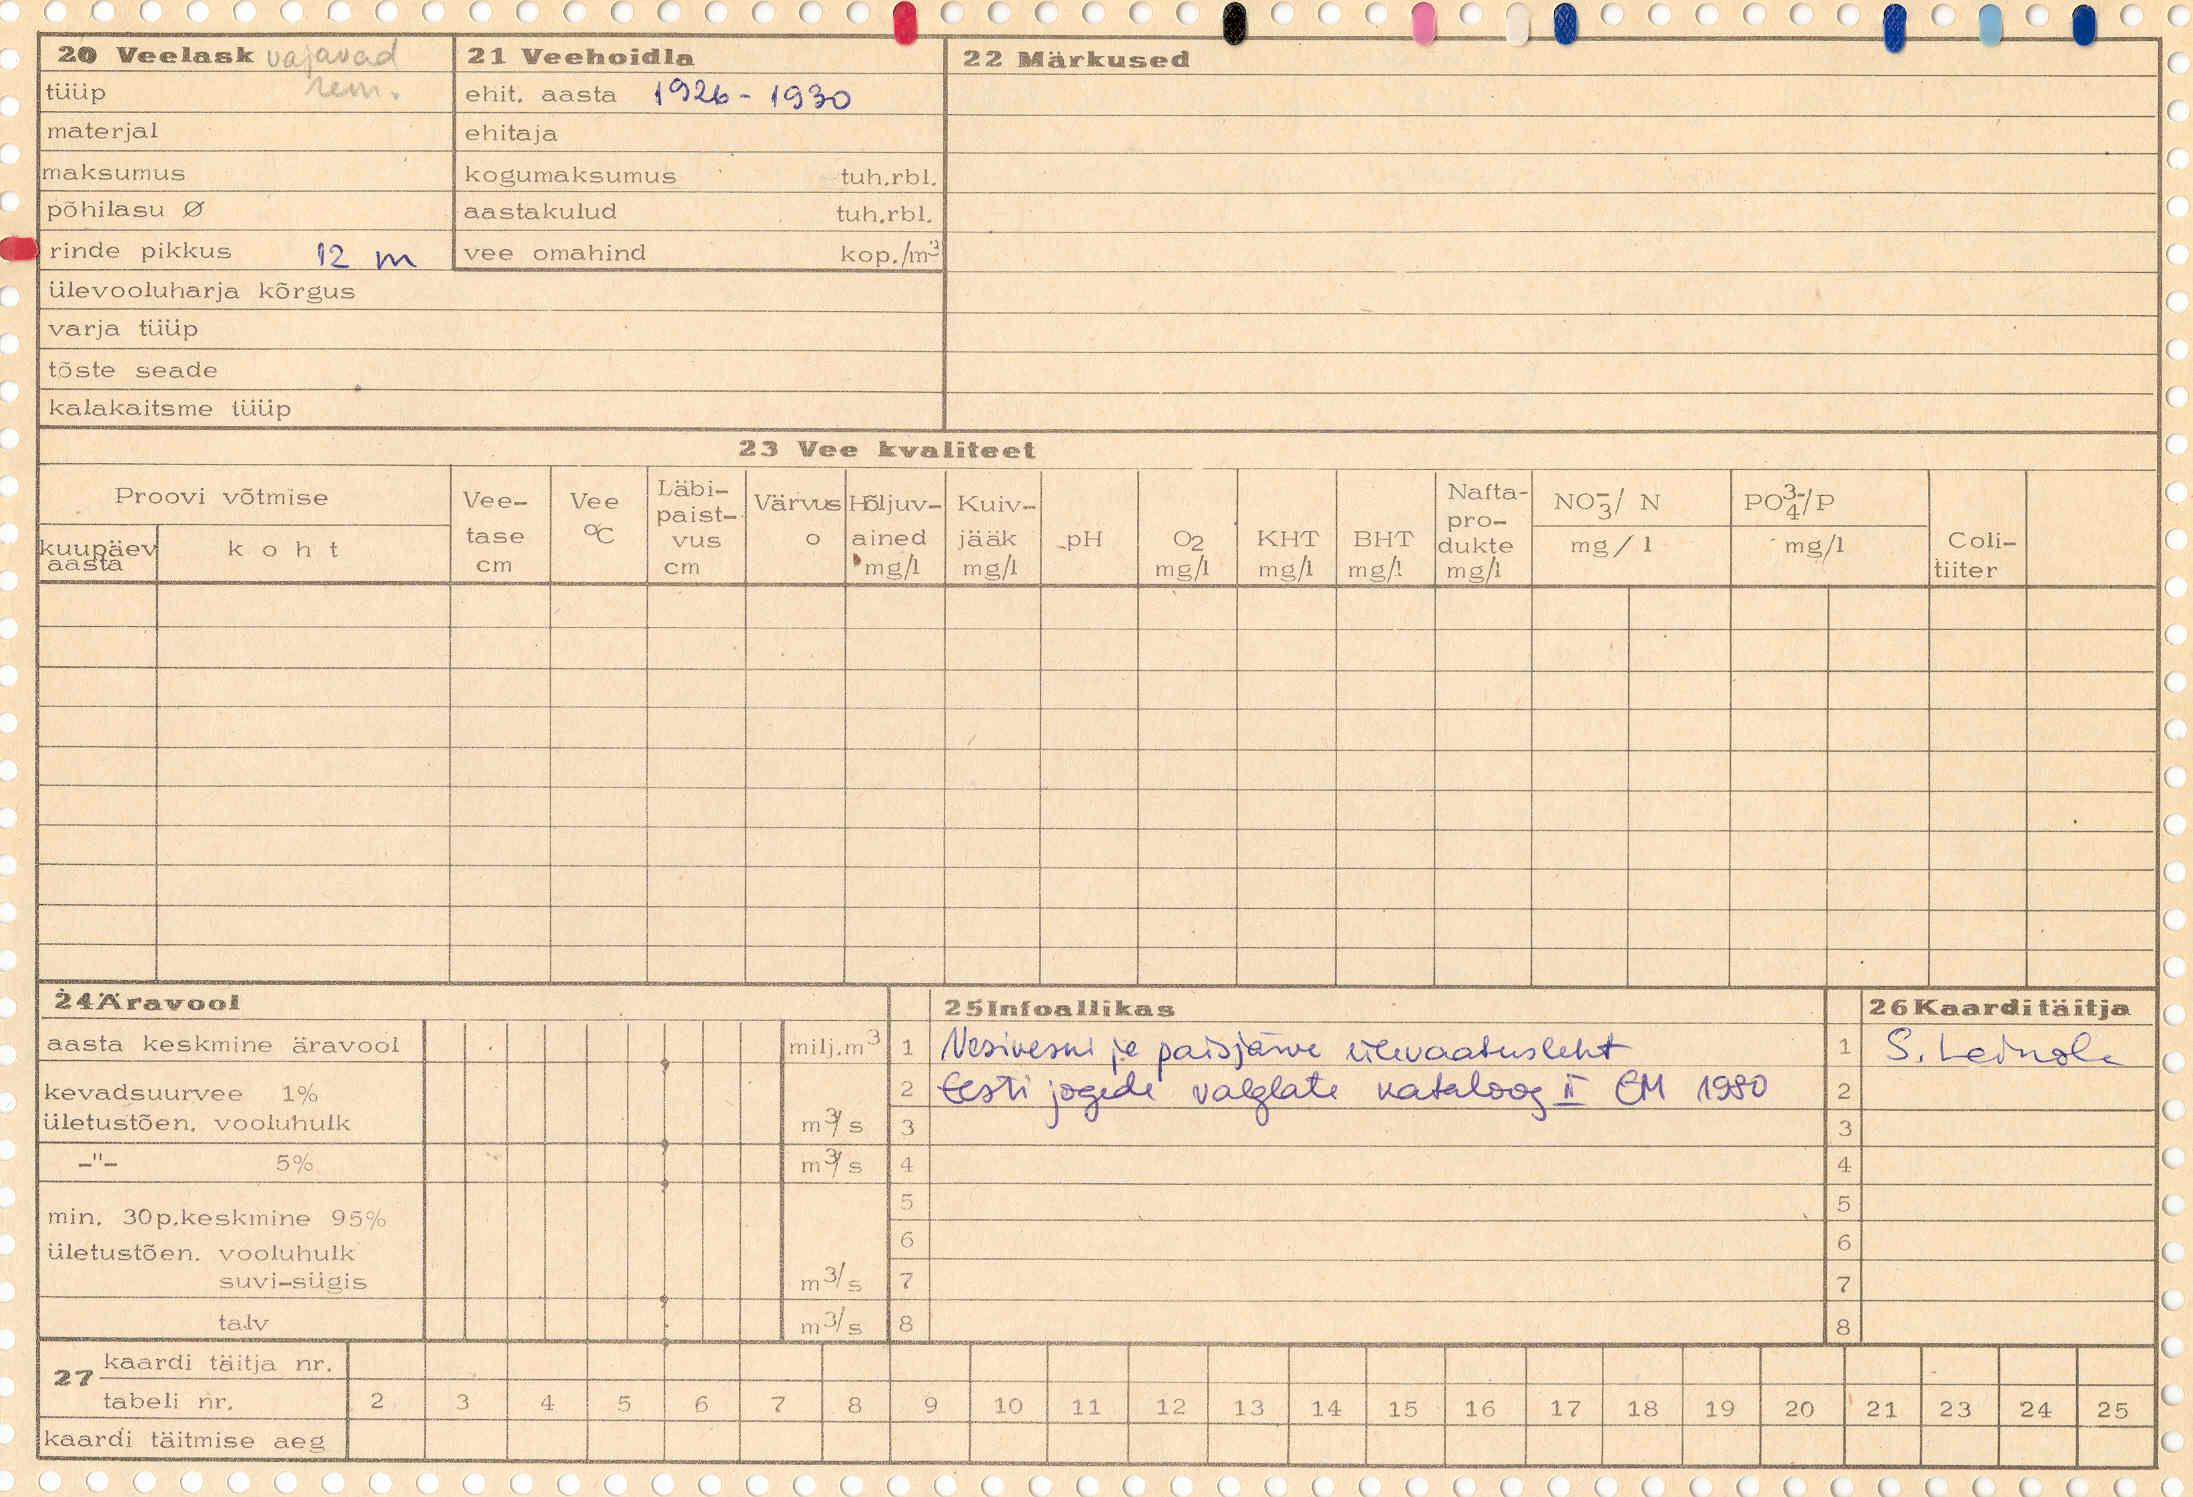 20 Veelask vajavad
rem.
tüüp
materjal
maksumus
põhilasu Ø
rinde pikkus 12 m
ülevooluharja kõrgus
varja tüüp
tõste seade
kalakaitsme tüüp
21 Veehoidla
ehit. aasta 1926 - 1930
ehitaja
kogumaksumus tuh.rbl.
aastakulud tuh.rbl.
vee omahind kop./m³
22 Märkused
23 Vee kvaliteet
Proovi võtmise
kuupäev
aasta
koht
Vee-
tase
cm
Vee
°C
Läbi-
paist-
vus
cm
Värvus
o
Hõljuv-
ained
mg/l
Kuiv-
jääk
mg/l
pH
O₂
mg/l
KHT
mg/l
BHT
mg/l
Nafta-
pro-
dukte
mg/l
NO₃⁻/ N
mg/l
PO₄³⁻/P
mg/l
Coli-
tiiter
24 Äravool
aasta keskmine äravool milj.m³
kevadsuurvee 1%
ületustõen. vooluhulk m³/s
-"- 5% m³/s
min. 30p.keskmine 95%
ületustõen. vooluhulk
suvi-sügis m³/s
talv m³/s
25 Infoallikas
1 Vesiveski ja paisjärve ülevaatusleht
2 Eesti jõgede valglate kataloog II EM 1980
3
4
5
6
7
8
26 Kaardi täitja
1 S.
2
3
4
5
6
7
8
27 kaardi täitja nr.
tabeli nr. 2 3 4 5 6 7 8 9 10 11 12 13 14 15 16 17 18 19 20 21 23 24 25
kaardi täitmise aeg